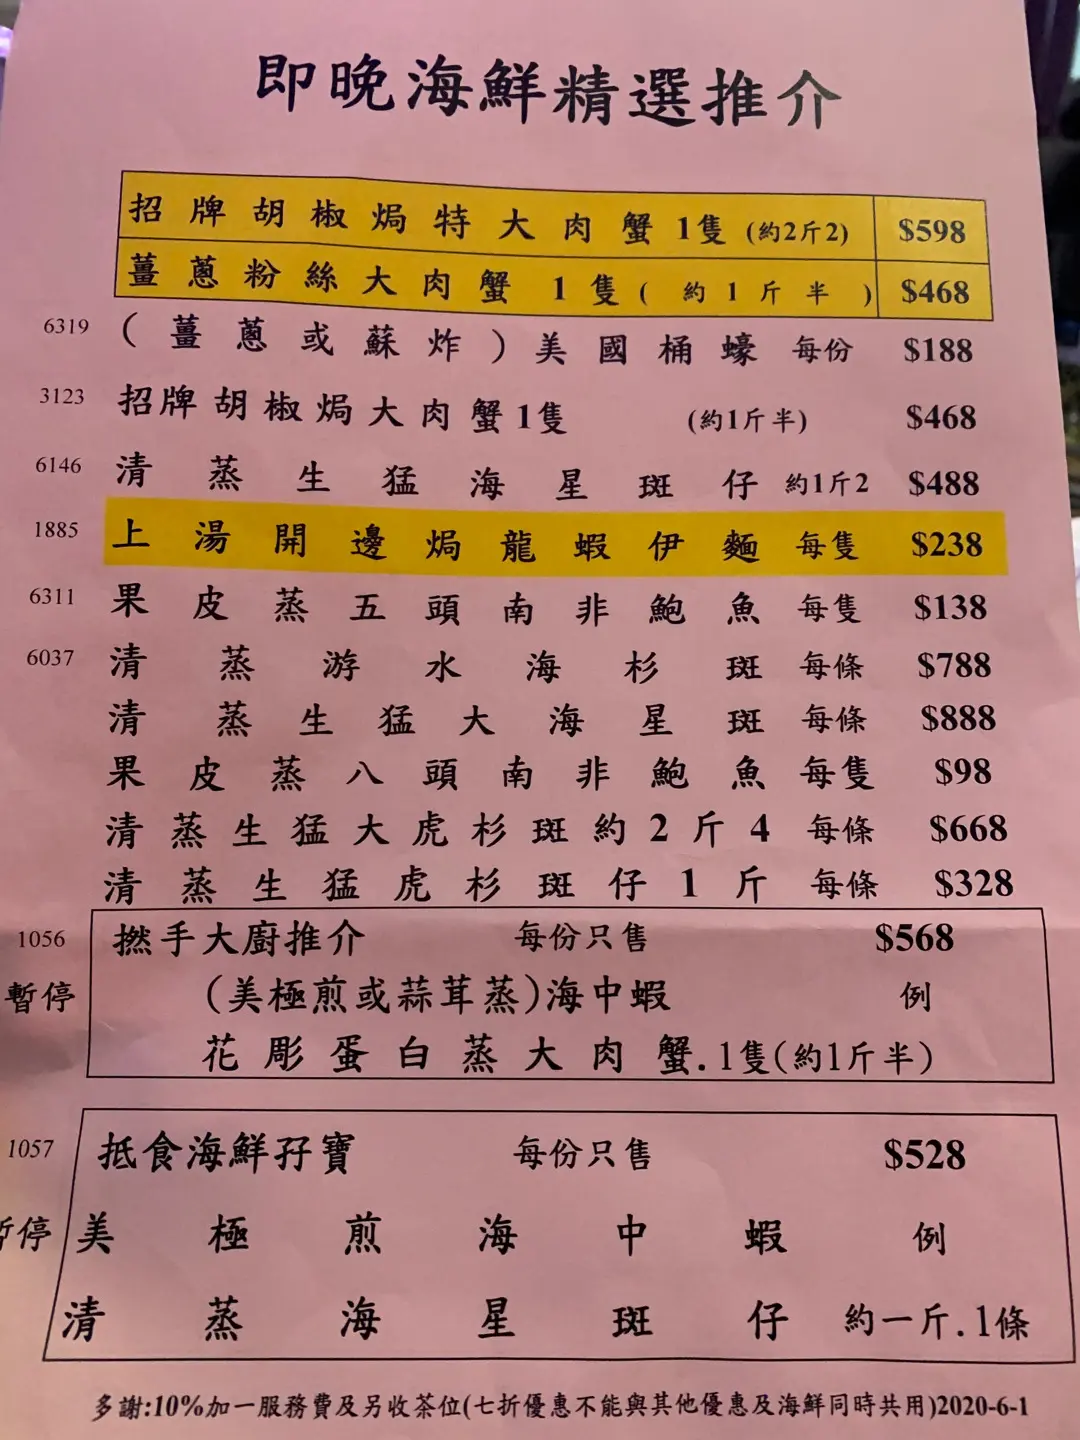 即晚海鮮精選推介
招牌胡椒焗特大肉蟹1隻 (約2斤2) $598
薑蔥粉絲大肉蟹 1隻( 約1斤半 ) $468
6319 (薑蔥或蘇炸)美國桶蠔 每份 $188
3123 招牌胡椒焗大肉蟹1隻 (約1斤半) $468
6146 清蒸生猛海星斑仔 約1斤2 $488
1885 上湯開邊焗龍蝦伊麵 每隻 $238
6311 果皮蒸五頭南非鮑魚 每隻 $138
6037 清蒸游水海杉斑 每條 $788
清蒸生猛大海星斑 每條 $888
果皮蒸八頭南非鮑魚 每隻 $98
清蒸生猛大虎杉斑約2斤4 每條 $668
清蒸生猛虎杉斑仔1斤 每條 $328
1056 撚手大廚推介 每份只售 $568
暫停 (美極煎或蒜茸蒸)海中蝦 例
花彫蛋白蒸大肉蟹.1隻(約1斤半)
1057 抵食海鮮孖寶 每份只售 $528
暫停 美極煎海中蝦 例
清蒸海星斑仔 約一斤.1條
多謝:10%加一服務費及另收茶位(七折優惠不能與其他優惠及海鮮同時共用)2020-6-1